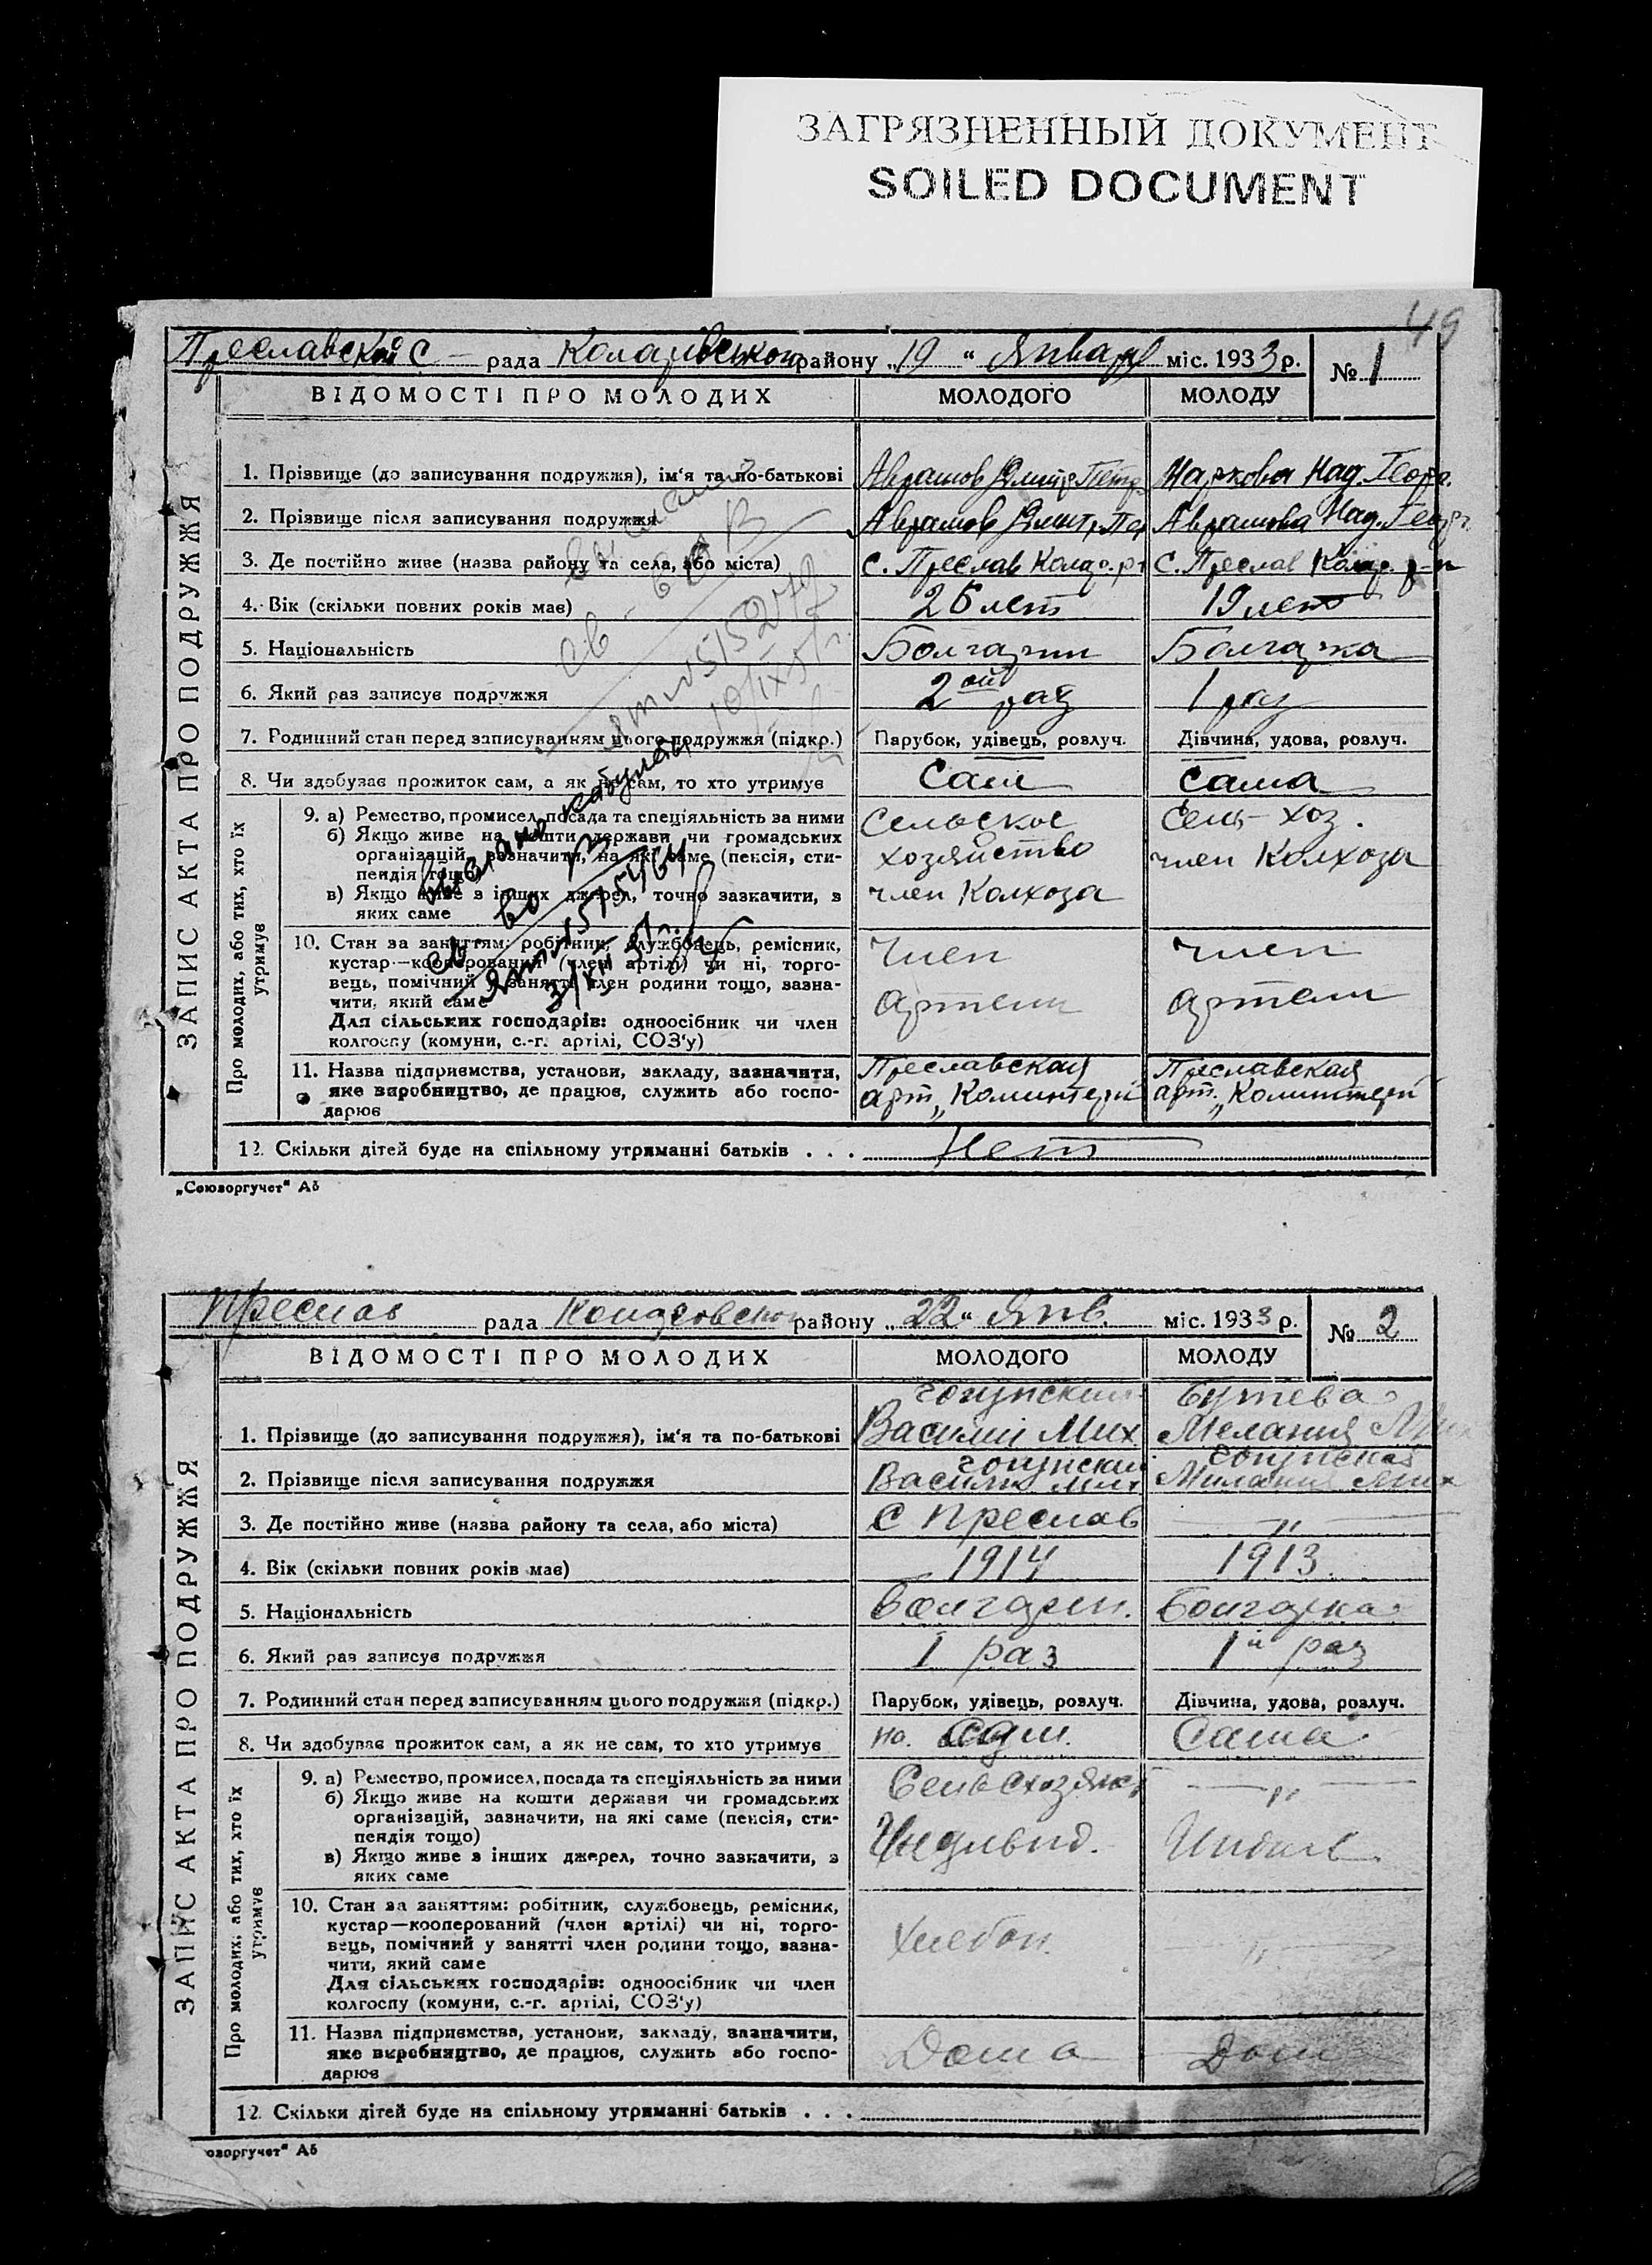 ЗАГРЯЗНЕННЫЙ ДОКУМЕНТ
SOILED DOCUMENT
49
Преславской С – рада Коларовського району „19“ Января міс. 1933 р. № 1
ЗАПИС АКТА ПРО ПОДРУЖЖЯ
ВІДОМОСТІ ПРО МОЛОДИХ МОЛОДОГО МОЛОДУ
1. Прізвище (до записування подружжя), ім'я та по-батькові Аврамов Дмитр Петр. Маркова Над. Георг.
2. Прізвище після записування подружжя Аврамов Дмит, Пе, Аврамова Над. Георг.
3. Де постійно живе (назва району та села, або міста) С. Преслав Колар. р С. Преслав Колар. р-н
4. Вік (скільки повних років має) 26 лет 19 лет
5. Національність Болгарин Болгарка
6. Який раз записує подружжя 2ой раз 1 раз
7. Родинний стан перед записуванням цього подружжя (підкр.) Парубок, удівець, розлуч. Дівчина, удова, розлуч.
8. Чи здобуває прожиток сам, а як не сам, то хто утримує Сам Сама
Про молодих, або тих, хто їх утримує
9. а) Ремество, промисел, посада та спеціяльність за ними Сельское Сель-хоз.
б) Якщо живе на кошти держави чи громадських
організацій, зазначити, на які саме (пенсія, сти- хозяйство член Колхоза
пендія тощо)
в) Якщо живе з інших джерел, точно зазначити, з член Колхоза
яких саме
10. Стан за заняттям: робітник, службовець, ремісник, Член член
кустар—кооперований (член артілі) чи ні, торго-
вець, помічний у занятті член родини тощо, зазна-
чити, який саме артели артели
Для сільських господарів: одноосібник чи член
колгоспу (комуни, с.-г. артілі, СОЗ'у)
11. Назва підприємства, установи, закладу, зазначити, Преславская Преславская
яке виробництво, де працює, служить або госпо- арт. „Коминтерн арт. „Коминтерн
дарює
12. Скільки дітей буде на спільному утриманні батьків . . . Нет
„Союзоргучет“ Аб
Преслав рада Коларовского району „22“ Янв. міс. 1933 р. № 2
ЗАПИС АКТА ПРО ПОДРУЖЖЯ
ВІДОМОСТІ ПРО МОЛОДИХ МОЛОДОГО МОЛОДУ
Бутева
1. Прізвище (до записування подружжя), ім'я та по-батькові Василий Мих Мелания
2. Прізвище після записування подружжя Василий Мих
3. Де постійно живе (назва району та села, або міста) С Преслав — „ —
4. Вік (скільки повних років має) 1914 1913
5. Національність Болгарин. Болгарка
6. Який раз записує подружжя 1 раз 1й раз
7. Родинний стан перед записуванням цього подружжя (підкр.) Парубок, удівець, розлуч. Дівчина, удова, розлуч.
8. Чи здобуває прожиток сам, а як не сам, то хто утримує сам. Сама
Про молодих, або тих, хто їх утримує
9. а) Ремество, промисел, посада та спеціяльність за ними — „ —
б) Якщо живе на кошти держави чи громадських
організацій, зазначити, на які саме (пенсія, сти-
пендія тощо) Индивид. Индив
в) Якщо живе з інших джерел, точно зазначити, з
яких саме
10. Стан за заняттям: робітник, службовець, ремісник,
кустар—кооперований (член артілі) чи ні, торго-
вець, помічний у занятті член родини тощо, зазна- Хлебоп. — „ —
чити, який саме
Для сільських господарів: одноосібник чи член
колгоспу (комуни, с.-г. артілі, СОЗ'у)
11. Назва підприємства, установи, закладу, зазначити,
яке виробництво, де працює, служить або госпо- Дома Дом
дарює
12. Скільки дітей буде на спільному утриманні батьків . . .
оюзоргучет“ Аб